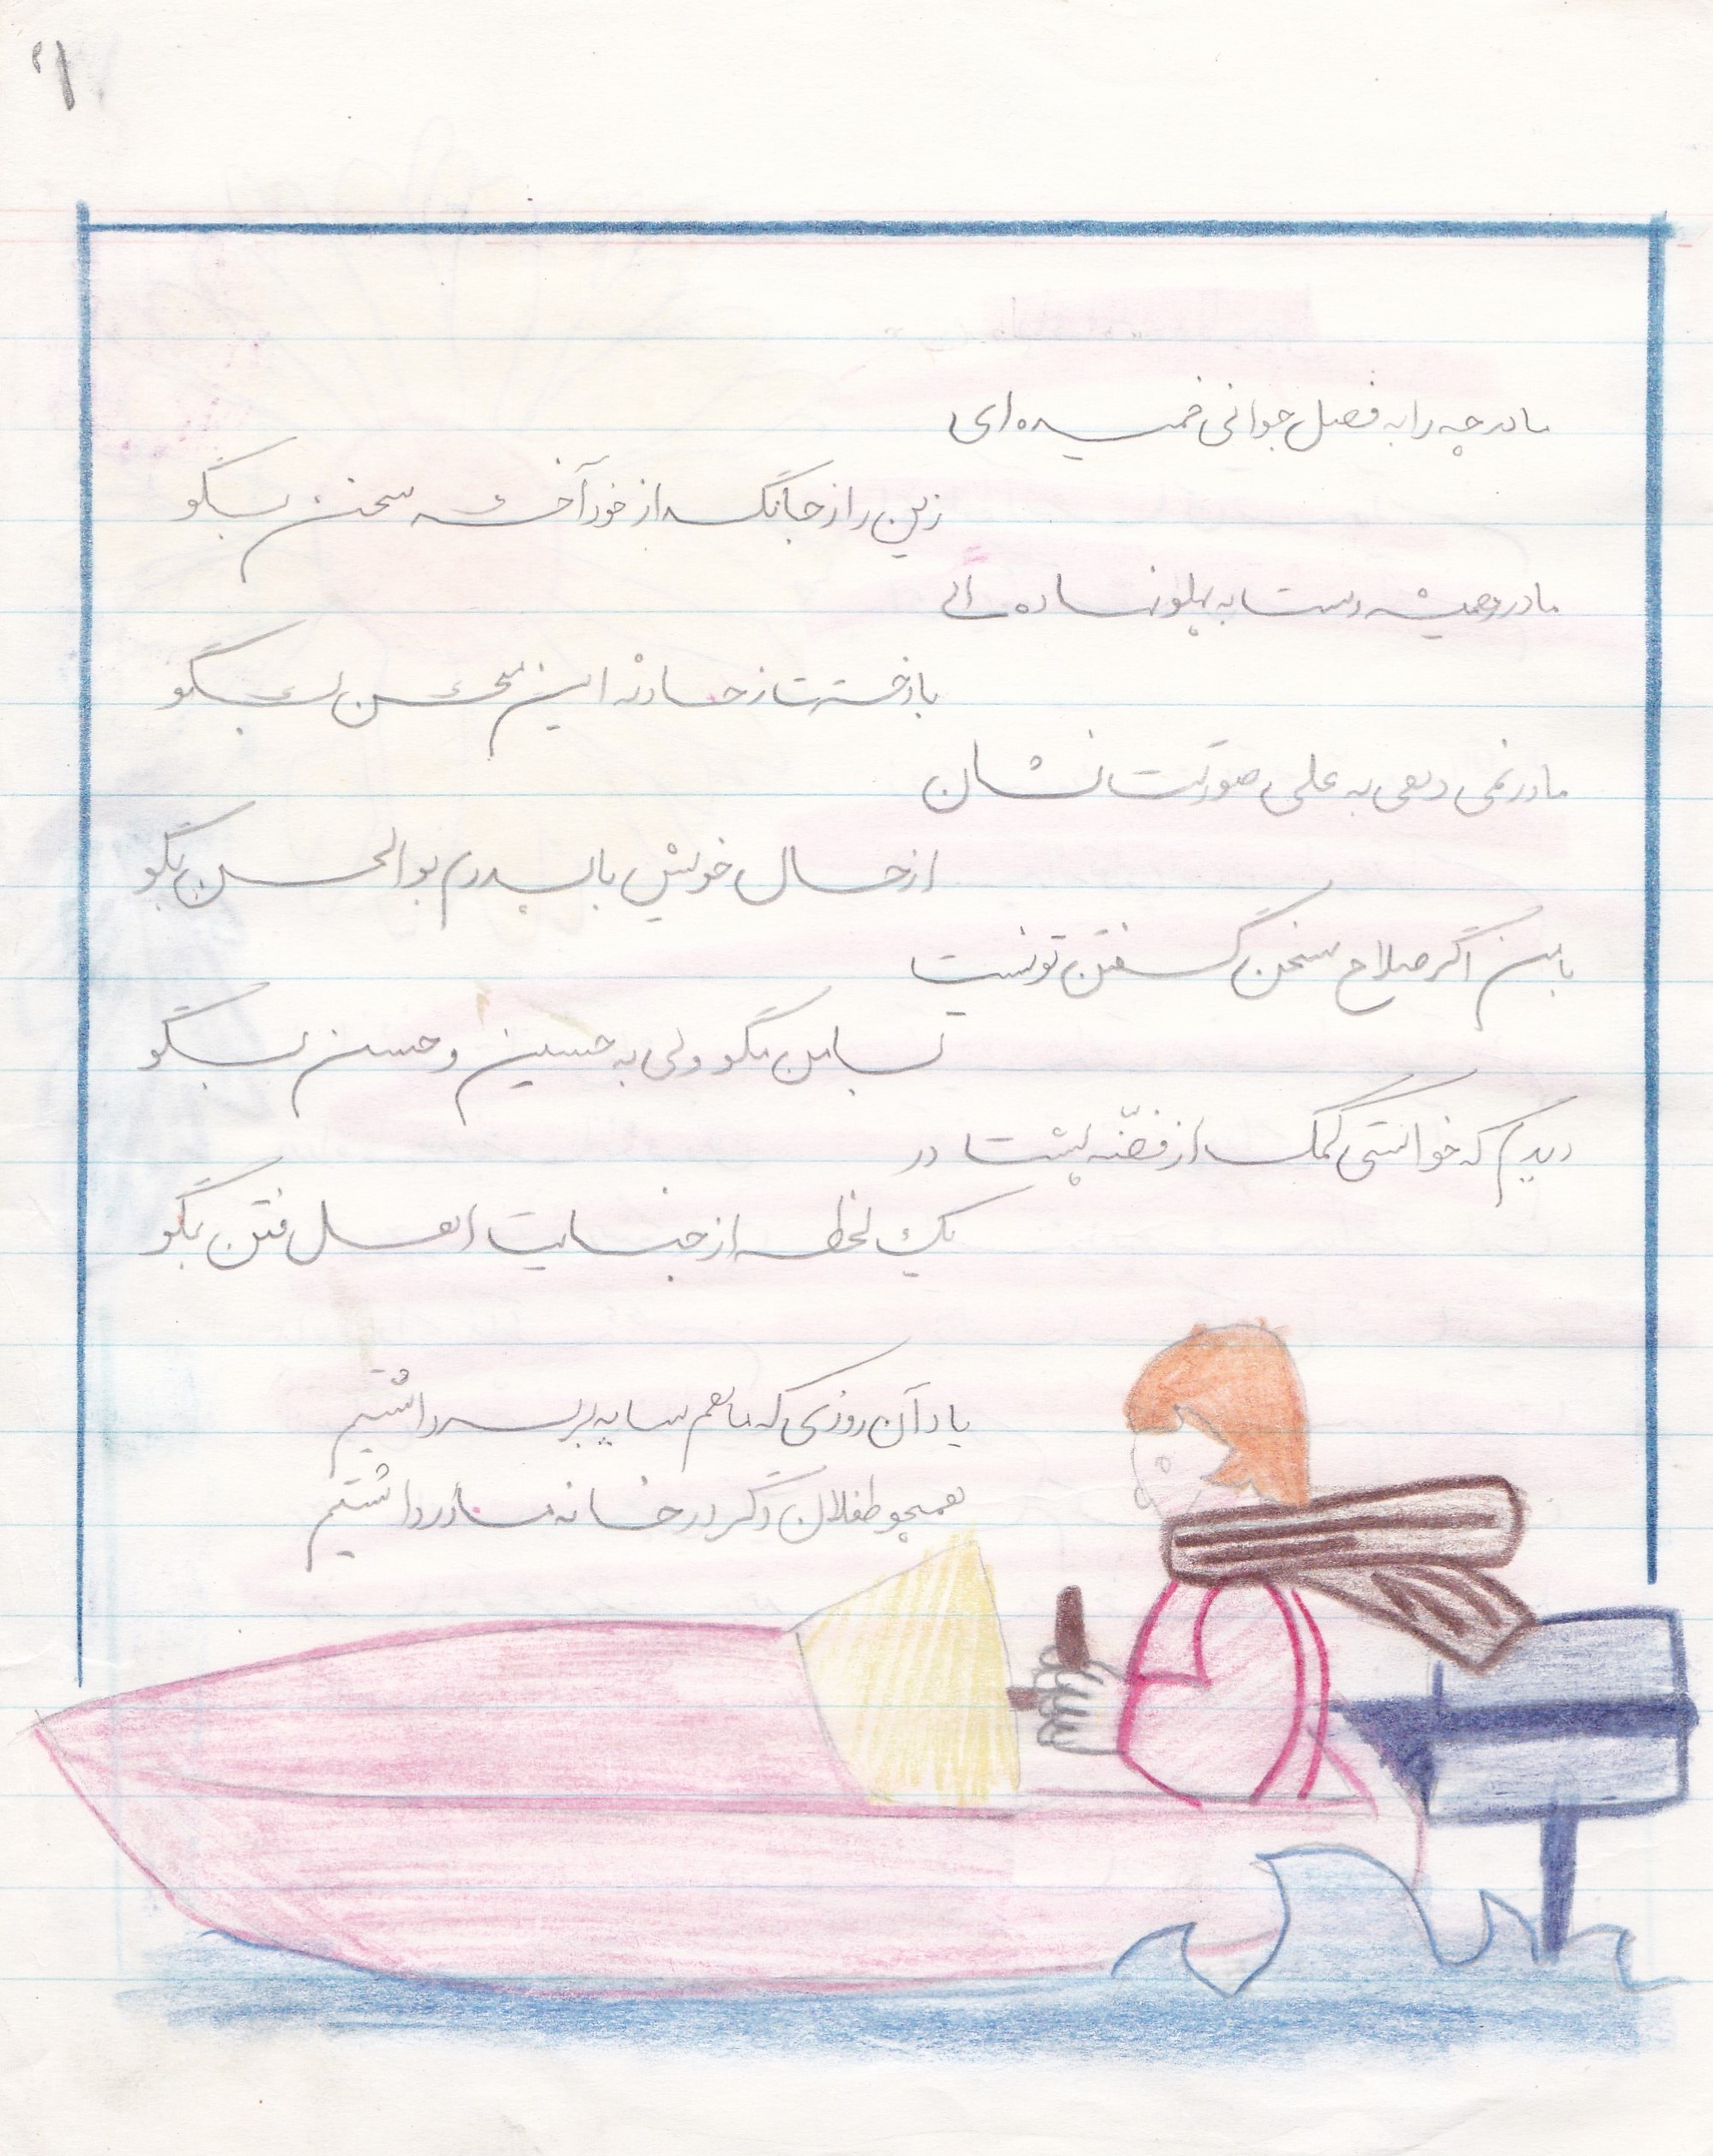 مادر چه را به فصل جوانی خمیده‌ای
زین راز جانگداز خود آخر سخن بگو
مادر همیشه دست به پهلو نهاده‌ای
با دخترت ز حادثه این محن بگو
مادر نمی دهی به علی صورتت نشان
از حال خویش با پدرم بوالحسن بگو
با من اگر صلاح سخن گفتن تو نیست
با من مگو ولی به حسین و حسن بگو
دیدم که خواستی کمک از فضّه پشت در
یک لحظه از جنایت اهل فتن بگو
یاد آن روزی که ما هم سایه بر سر داشتیم
همچو طفلان دگر در خانه مادر داشتیم